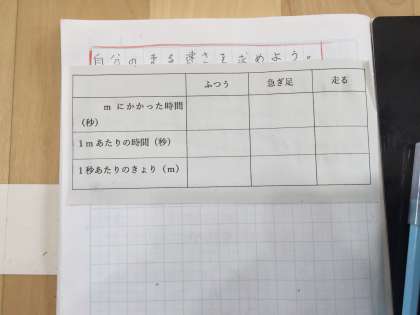 自分の走る速さを求めよう。
ふつう 急ぎ足 走る
mにかかった時間
(秒)
1mあたりの時間(秒)
1秒あたりのきょり(m)